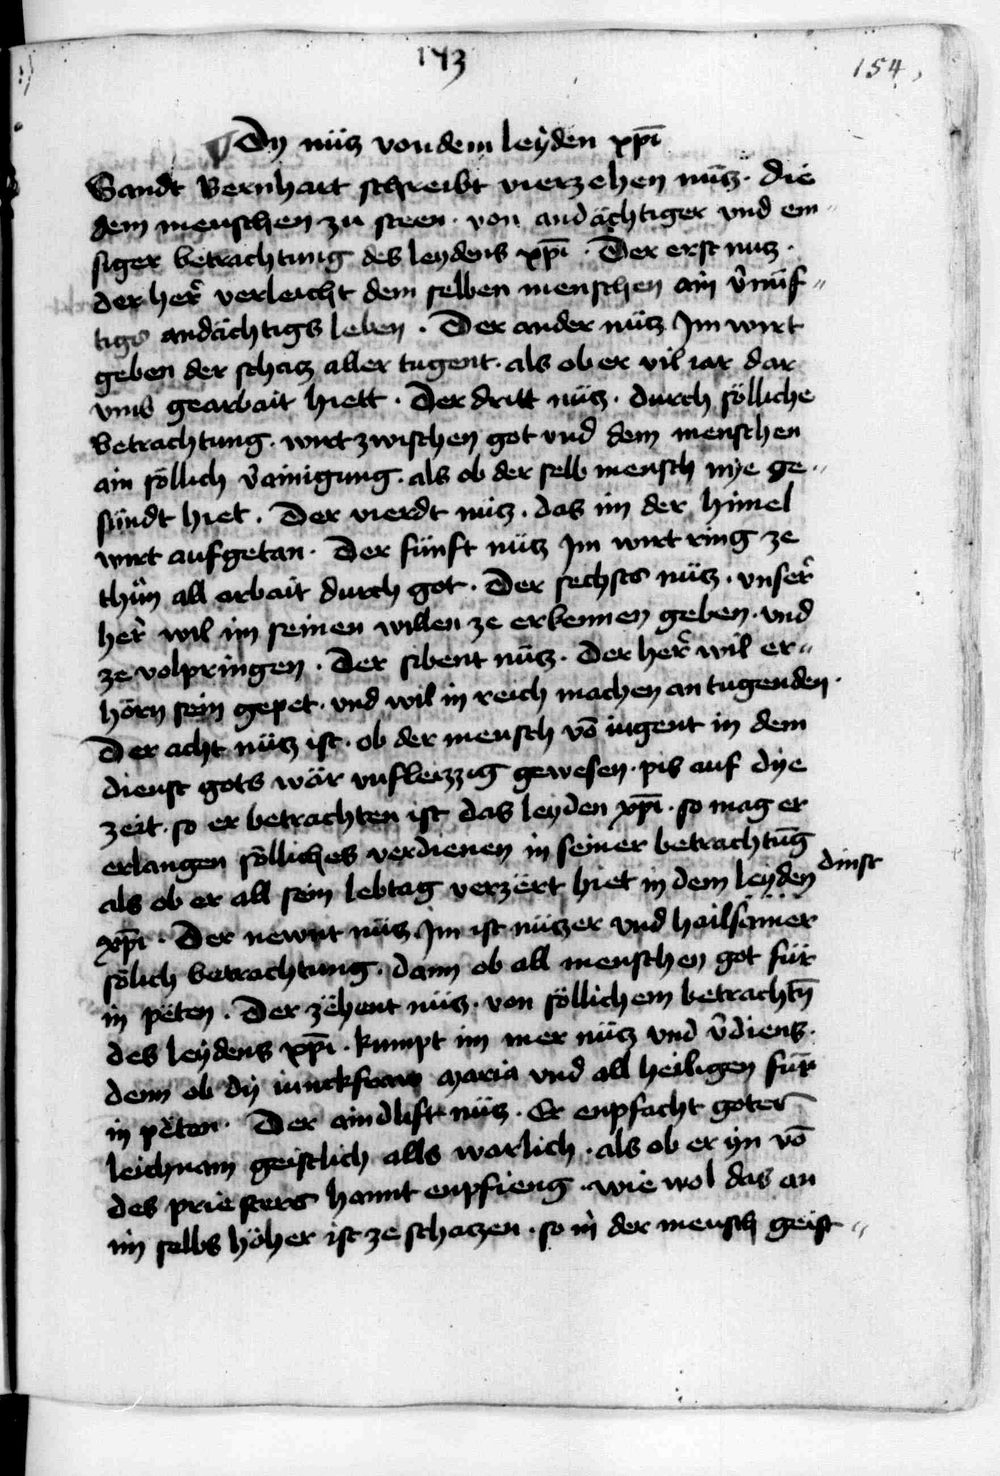 173
154,
¶ Dy nücz von dem leyden xp̄i
Sandt Bernhart schreibt vierzehen nücz · die
dem menschen zu steen · von andächtiger vnd em-
siger betrachtung des leydens xp̄i · Der erst nutz ·
der her̄ verleicht dem selben menschen ain v̄nüf-
tigs andächtigs leben · Der ander nücz Im wirt
geben der schatz aller tugent · als ob er vil iar dar
vmb gearbait hiett · Der dritt nücz · durch sölliche
betrachtung · wirt zwischen got vnd dem menschen
ain söllich v̄ainigung · als ob der selb mensch nye ge-
sündt hiet · Der vierdt nücz · das im der himel
wirt aufgetan · Der fünft nücz Im wirt ring ze
thůn all arbait durch got · Der sechsts nücz · vnser̄
her̄ wil im seinen willen ze erkennen geben · vnd
ze volpringen · Der sibent nücz · Der her̄ wil er-
hörn sein gepet · vnd wil in reich machen an tugenden ·
Der acht nücz ist · ob der mensch vō iugent in dem
dienst gots wär vnfleizzig gewesen · pis auf dye
zeit · so er betrachten ist das leyden xp̄i · so mag er
erlangen sölliches verdienen in seiner betrachtūg
als ob er all sein lebtag verzert hiet in dem leyden dinst
xp̄i · Der newnt nücz Im ist nützer vnd hailsamer
sölich betrachtung · dann ob all menschen got für
in peten · Der zehent nücz · von söllichem betracht̄n
des leydens xp̄i · kumpt im mer nücz vnd v̄diens ·
denn ob dy iunckfraw maria vnd all heiligen für
in peten · Der aindlift nücz · Er enpfacht gotes
leichnam geistlich alls warlich · als ob er yn vō
des priesters hannt enpfieng · wie wol das an
im selbs höher ist ze schatzen · so in der mensch geist-